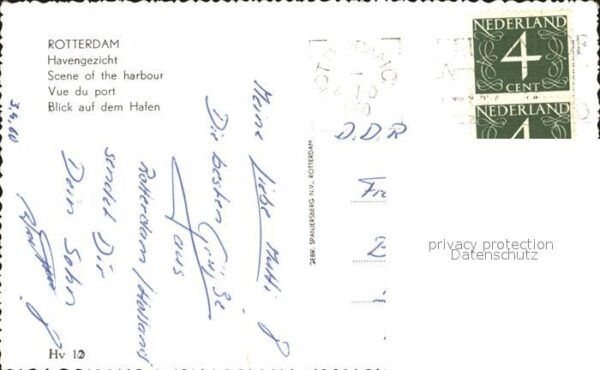 ROTTERDAM
Havengezicht
Scene of the harbour
Vue du port
Blick auf dem Hafen
3.4.60
Meine Liebe Mutti!
Die besten Grüße
aus
Rotterdam/Holland
sendet Dir
Dein Sohn
Hv 12
GEBR. SPANJERSBERG N.V., ROTTERDAM
NEDERLAND
4
CENT
NEDERLAND
4
D.D.R
Fr
privacy protection
Datenschutz